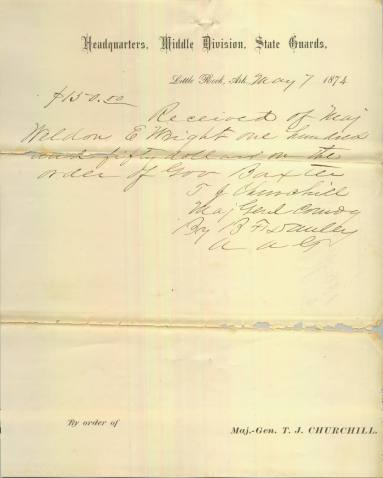 Headquarters, Middle Division, State Guards,
Little Rock, Ark. May 7 1874
$150.00
Received of Maj
Weldon E Wright one hundred
and fifty dollars on the
order of Gov Baxter
T J Churchill
Maj Genl Comdg
By B F Danley
A A G
By order of
Maj.-Gen. T. J. CHURCHILL.